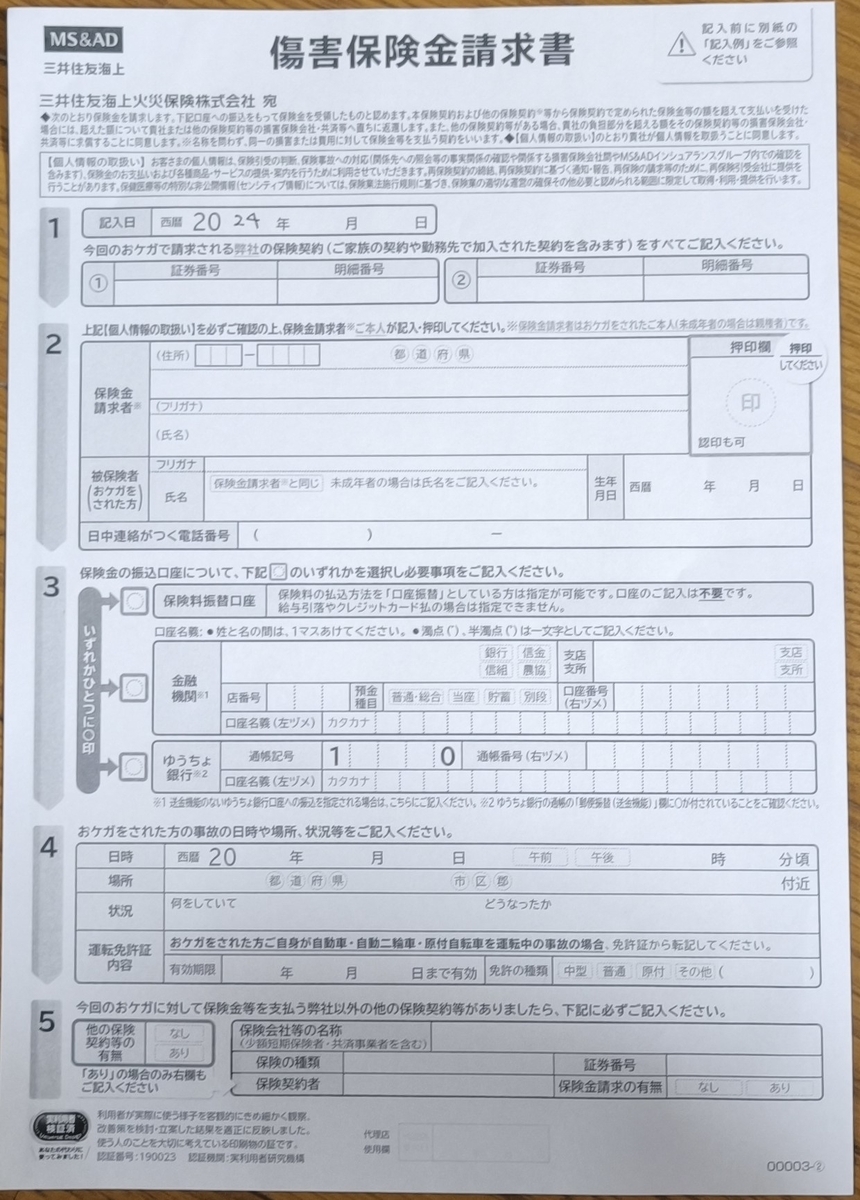 MS&AD
三井住友海上
傷害保険金請求書
記入前に別紙の
「記入例」をご参照
ください
三井住友海上火災保険株式会社 宛
◆次のとおり保険金を請求します。下記口座への振込をもって保険金を受領したものと認めます。本保険契約および他の保険契約※等から保険契約で定められた保険金等の額を超えて支払いを受けた
場合には、超えた額について貴社または他の保険契約等の損害保険会社・共済等へ直ちに返還します。また、他の保険契約等がある場合、貴社の負担部分を超える額をその保険契約等の損害保険会社・
共済等に求償することに同意します。※名称を問わず、同一の損害または費用に対して保険金等を支払う契約をいいます。◆【個人情報の取扱い】のとおり貴社が個人情報を取扱うことに同意します。
【個人情報の取扱い】お客さまの個人情報は、保険引受の判断、保険事故への対応(関係先への照会等の事実関係の確認や関係する損害保険会社間やMS&ADインシュアランスグループ内での確認を
含みます)、保険金のお支払いおよび各種商品・サービスの提供・案内を行うために利用させていただきます。再保険契約の締結、再保険契約に基づく通知・報告、再保険金の請求等のために、再保険引受会社に提供を
行うことがあります。保健医療等の特別な非公開情報(センシティブ情報)については、保険業法施行規則に基づき、保険業の適切な運営の確保その他必要と認められる範囲に限定して取得・利用・提供を行います。
1
記入日 西暦 20 24 年 月 日
今回のおケガで請求される弊社の保険契約(ご家族の契約や勤務先で加入された契約を含みます)をすべてご記入ください。
① 証券番号 明細番号 ② 証券番号 明細番号
2
上記【個人情報の取扱い】を必ずご確認の上、保険金請求者※ご本人が記入・押印してください。※保険金請求者はおケガをされたご本人(未成年者の場合は親権者)です。
保険金
請求者※
(住所) ー 都 道 府 県
(フリガナ)
(氏名)
押印欄
押印
してください
印
認印も可
被保険者
(おケガを
された方)
フリガナ
氏名
保険金請求者※と同じ 未成年者の場合は氏名をご記入ください。
生年
月日
西暦 年 月 日
日中連絡がつく電話番号 ( ) ー
3
保険金の振込口座について、下記○のいずれかを選択し必要事項をご記入ください。
いずれかひとつに○印
保険料振替口座
保険料の払込方法を「口座振替」としている方は指定が可能です。口座のご記入は不要です。
給与引落やクレジットカード払の場合は指定できません。
口座名義:●姓と名の間は、1マスあけてください。●濁点(゛)、半濁点(゜)は一文字としてご記入ください。
金融
機関※1
銀行 信金
信組 農協
支店
支所
支店
支所
店番号
預金
種目
普通・総合 当座 貯蓄 別段
口座番号
(右ヅメ)
口座名義(左ヅメ) カタカナ
ゆうちょ
銀行※2
通帳記号 1 0 通帳番号(右ヅメ)
口座名義(左ヅメ) カタカナ
※1 送金機能のないゆうちょ銀行口座への振込を指定される場合は、こちらにご記入ください。※2 ゆうちょ銀行の通帳の「郵便振替(送金機能)」欄に○が付されていることをご確認ください。
4
おケガをされた方の事故の日時や場所、状況等をご記入ください。
日時 西暦 20 年 月 日 午前 午後 時 分頃
場所 都 道 府 県 市 区 郡 付近
状況 何をしていて どうなったか
運転免許証
内容
おケガをされた方ご自身が自動車・自動二輪車・原付自転車を運転中の事故の場合、免許証から転記してください。
有効期限 年 月 日まで有効 免許の種類 中型 普通 原付 その他( )
5
今回のおケガに対して保険金等を支払う弊社以外の他の保険契約等がありましたら、下記に必ずご記入ください。
他の保険
契約等の
有無
なし
あり
「あり」の場合のみ右欄も
ご記入ください
保険会社等の名称
(少額短期保険者・共済事業者を含む)
保険の種類 証券番号
保険契約者 保険金請求の有無 なし あり
実利用者
検証済
Universal Design
あなたの代わりに
使ってみました!
利用者が実際に使う様子を客観的にきめ細かく観察。
改善策を検討・立案した結果を適正に反映しました。
使う人のことを大切に考えている印刷物の証です。
認証番号:190023 認証機関:実利用者研究機構
代理店
使用欄
00003-②